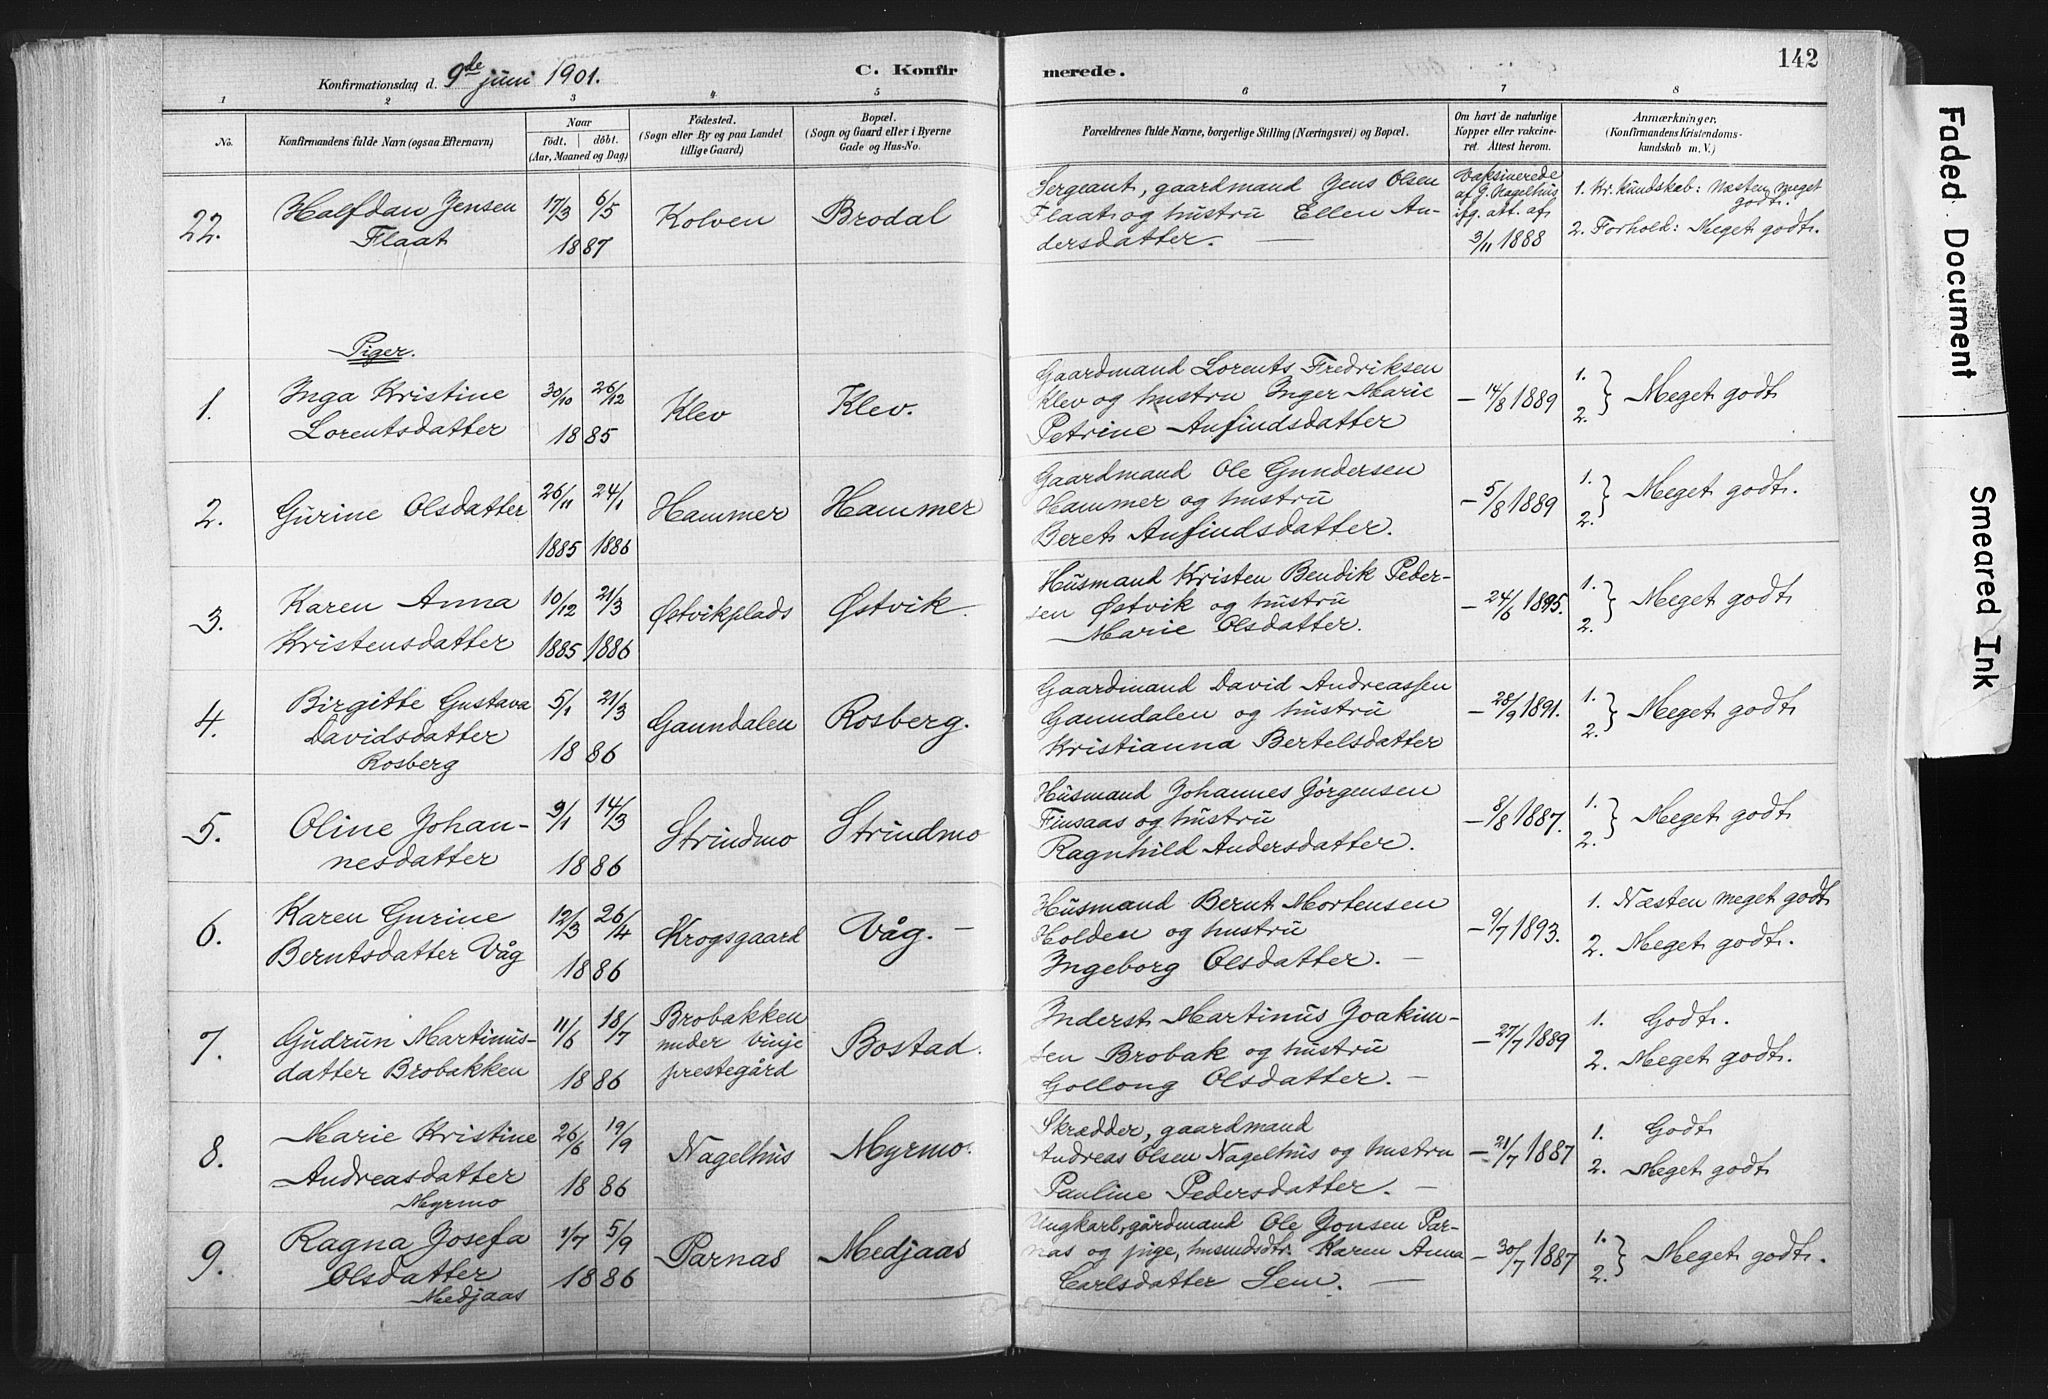 142
Konfirmationsdag d. 9de juni 1901.
C. Konfirmerede.
1 2 3 4 5 6 7 8
No.
Konfirmandens fulde Navn (ogsaa Efternavn)
Naar
født. døbt.
(Aar, Maaned og Dag)
Fødested.
(Sogn eller By og paa Landet
tillige Gaard)
Bopæl.
(Sogn og Gaard eller i Byerne
Gade og Hus-No.
Forældrenes fulde Navne, borgerlige Stilling (Næringsvei) og Bopæl.
Om havt de naturlige
Kopper eller vakcine-
ret. Attest herom.
Anmærkninger,
(Konfirmandens Kristendoms-
kundskab m. V.)
22.
Halfdan Jensen
Flaat
17/3 6/5
1887
Kolven
Brodal
Sergeant, gaardmand Jens Olsen
Flaat og hustru Ellen An-
dersdatter. —
Vaksinerede
af J. Nagelhus
ifg. att. af
3/11 1888
1. Kr. kundskab: Næsten meget
godt.
2. Forhold: Meget godt.
Piger.
1.
Inga Kristine
Lorentsdatter
30/10 26/12
1885
Klev
Klev.
Gaardmand Lorents Fredriksen
Klev og hustru Inger Marie
Petrine Anfindsdatter
— 14/8 1889
1.
2. } Meget godt
2.
Gurine Olsdatter
26/11 24/1
1885 1886
Hammer
Hammer
Gaardmand Ole Gundersen
Hammer og hustru
Beret Anfindsdatter.
— 5/8 1889
1.
2. } Meget godt.
3.
Karen Anna
Kristensdatter
10/12 21/3
1885 1886
Østvikplads
Østvik.
Husmand Kristen Bendik Peder-
sen Østvik og hustru
Marie Olsdatter.
— 24/6 1895.
1.
2. } Meget godt
4.
Birgitte Gustava
Davidsdatter
Rosberg
5/1 21/3
1886
Ganndalen
Rosberg.
Gaardmand David Andreassen
Ganndalen og hustru
Kristianna Bertelsdatter
— 28/9 1891.
1.
2. } Meget godt
5.
Oline Johan-
nesdatter
9/1 14/3
1886
Strindmo
Strindmo
Husmand Johannes Jörgensen
Finsaas og hustru
Ragnhild Andersdatter.
— 8/8 1887.
1.
2. } Meget godt
6.
Karen Gurine
Berntsdatter Våg
12/3 26/4
1886
Krogsgaard
Våg. —
Husmand Bernt Mortensen
Holden og hustru
Ingeborg Olsdatter. —
— 9/7 1893.
1. Næsten meget godt
2. Meget godt.
7.
Gudrun Martinus-
datter Brobakken
11/6 18/7
1886
Brobakken
under Vinje
prestegård
Bostad.
Inderst Martinus Joakim-
sen Brobak og hustru
Gollong Olsdatter. —
— 27/7 1889
1. Godt.
2. Meget godt.
8.
Marie Kristine
Andreasdatter
Myrmo
26/6 19/9
1886
Nagelhus
Myrmo.
Skrædder, gaardmand
Andreas Olsen Nagelhus og hustru
Pauline Pedersdatter. —
— 21/7 1887
1. Godt
2. Meget godt
9.
Ragna Josefa
Olsdatter
Medjaas
1/7 5/9
1886
Parnas
Medjaas
Ungkarl, gårdmand Ole Jonsen Par-
nas og pige, husmdsdtr. Karen Anna
Carlsdatter Sem. —
— 30/7 1887
1.
2. } Meget godt.
Faded Document
Smeared Ink